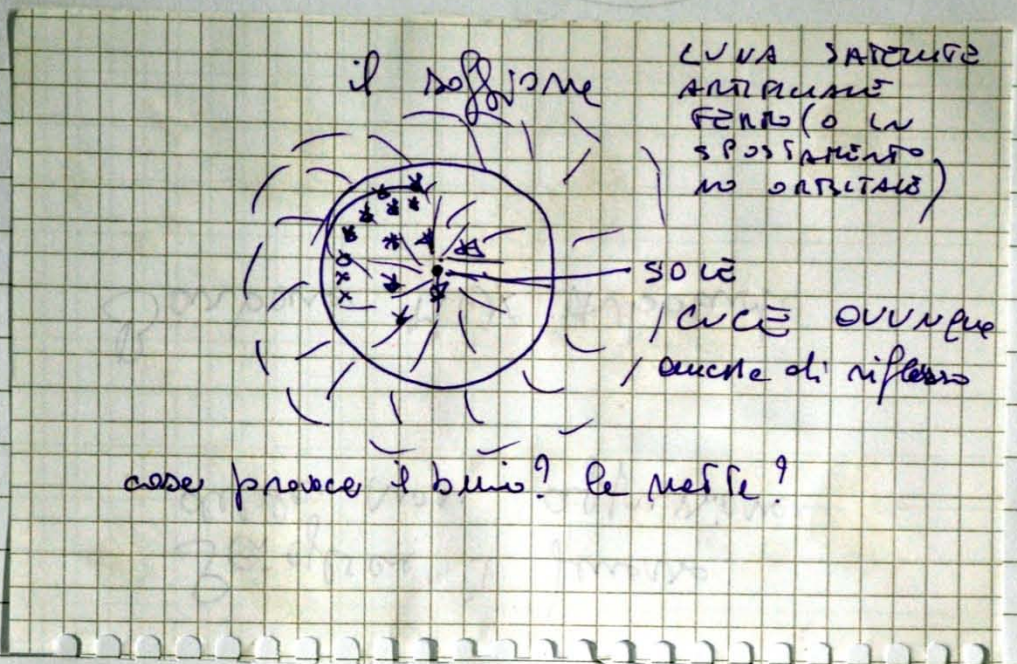 il soffione
LUNA SATELLITE
ARTIFICIALE
FERMO (O IN
SPOSTAMENTO
NO ORBITALE)
SOLE
/ LUCE OVUNQUE
/ anche di riflesso
cosa provoca il buio? la notte?